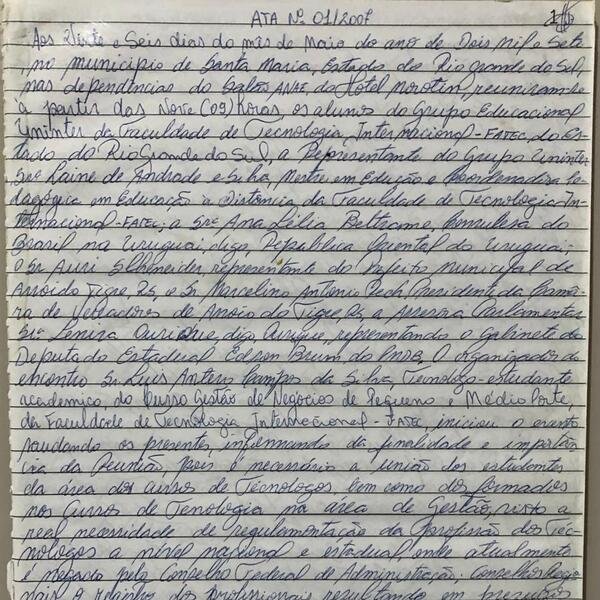 ATA Nº 01/2007 1
Aos Vinte e Seis dias do mês de Maio do ano de Dois Mil e Sete
, no município de Santa Maria, Estado do Rio Grande do Sul,
nas dependências do Salão do Hotel Morotin, reuniram-se
a partir das Nove (09) Horas, os alunos do Grupo Educacional
Uninter da Faculdade de Tecnologia Internacional-FATEC, do Es-
tado do Rio Grande do Sul, a Representante do Grupo Uninter
Srª Laine de Andrade e Silva, Mestre em Edução e Coordenadora Pe-
dagógica em Educação a Distância, da Faculdade de Tecnologia In-
ternacional-FATEC; a Srª Ana Lélia Beltrame, Consulesa do
Brasil na Uruguai, digo, República Oriental do Uruguai;
o Sr Auri representante do Prefeito Municipal de
Arroio do Tigre, RS, e Sr Marcelino Antonio Presidente da Câma-
ra de Vereadores de Arroio do Tigre RS, a Assessora Parlamentar
Srª Leniza digo, representando o Gabinete do
Deputado Estaderal Edson Brum do PMDB. O organizador do
encontro Sr. Luis Antero Campos da Silva, Tecnólogo-estudante
acadêmico, do Curso Gestão de Negócios de Pequeno e Médio Porte,
da Faculdade de Tecnologia Internacional - FATEC, iniciou o evento
saudando os presentes, informando da finalidade e importân-
cia da Reunião, pois é necessário a união dos estudantes
da área dos cursos de Tecnólogos, bem como dos formados
nos Cursos de Tenologia na área de Gestão, visto a
real necessidade de regulamentação da Profissão dos Téc-
nólogos a nível nacional e estadual, onde atualmente
é negado pelo Conselho Federal de Administração, Conselhos Regio-
nais o dos profissionais resultando em